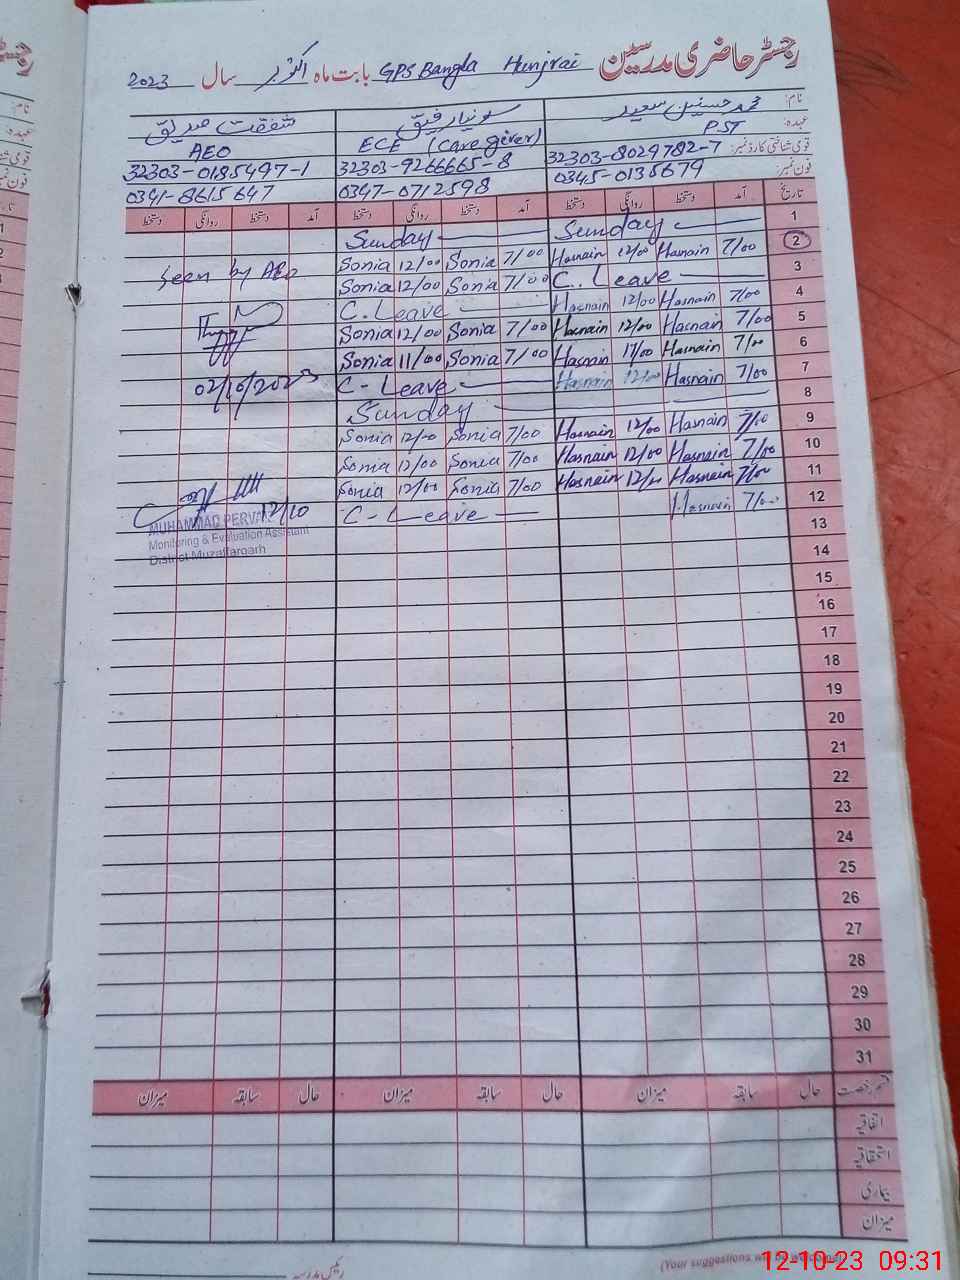 رجسٹر حاضری مدرسین GPS Bangla Hunjrai بابت ماہ اکتوبر سال 2023
نام: محمد حسنین سعید سونیا رفیق شفقت صدیق
عہدہ: PST ECE (Care giver) AEO
قومی شناختی کارڈ نمبر: 32303-8029782-7 32303-9266665-8 32303-0185497-1
فون نمبر: 0345-0135679 0347-0712598 0341-8615647
تاریخ آمد دستخط روانگی دستخط آمد دستخط روانگی دستخط آمد دستخط روانگی دستخط
1 Sunday Sunday
2 7/00 Hasnain 12/00 Hasnain 7/00 Sonia 12/00 Sonia Seen by AEO
3 C. Leave 7/00 Sonia 12/00 Sonia
4 7/00 Hasnain 12/00 Hasnain C. Leave
5 7/00 Hasnain 12/00 Hasnain 7/00 Sonia 12/00 Sonia
6 7/00 Hasnain 11/00 Hasnain 7/00 Sonia 11/00 Sonia
7 7/00 Hasnain 12/00 Hasnain C - Leave 02/10/2023
8 Sunday
9 7/00 Hasnain 12/00 Hasnain 7/00 Sonia 12/00 Sonia
10 7/00 Hasnain 12/00 Hasnain 7/00 Sonia 12/00 Sonia
11 7/00 Hasnain 12/00 Hasnain 7/00 Sonia 12/00 Sonia
12 7/00 Hasnain C - Leave 12/10
MUHAMMAD PERVAIZ
Monitoring & Evaluation Assistant
District Muzaffargarh
13
14
15
16
17
18
19
20
21
22
23
24
25
26
27
28
29
30
31
قسم رخصت حال سابقہ میزان حال سابقہ میزان حال سابقہ میزان
اتفاقیہ
استحقاقیہ
بیماری
میزان
رئیس مدرسہ
(Your suggestions will be welcomed)
12-10-23 09:31